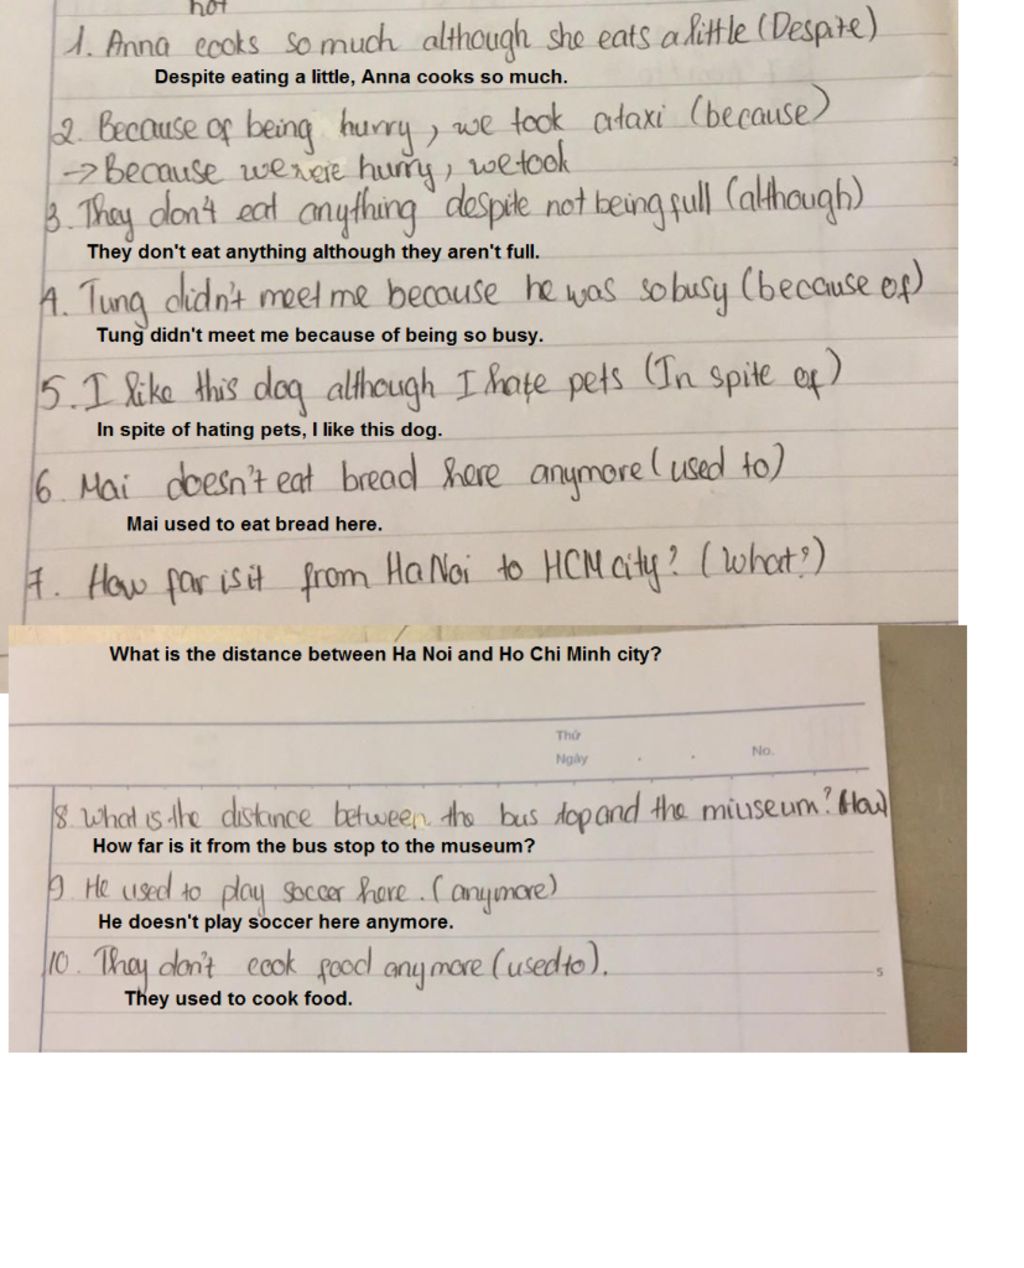 not
1. Anna cooks so much although she eats a little (Despite)
Despite eating a little, Anna cooks so much.
2. Because of being hurry, we took a taxi (because)
→ Because we were hurry, we took
3. They don't eat anything despite not being full (although)
They don't eat anything although they aren't full.
4. Tung didn't meet me because he was so busy (because of)
Tung didn't meet me because of being so busy.
5. I like this dog although I hate pets (In spite of)
In spite of hating pets, I like this dog.
6. Mai doesn't eat bread here anymore (used to)
Mai used to eat bread here.
7. How far is it from Ha Noi to HCM city? (What?)
What is the distance between Ha Noi and Ho Chi Minh city?
Thứ
Ngày . . No.
8. What is the distance between the bus stop and the miuseum? (How)
How far is it from the bus stop to the museum?
9. He used to play soccer here. (anymore)
He doesn't play soccer here anymore.
10. They don't cook food anymore (used to).
5
They used to cook food.